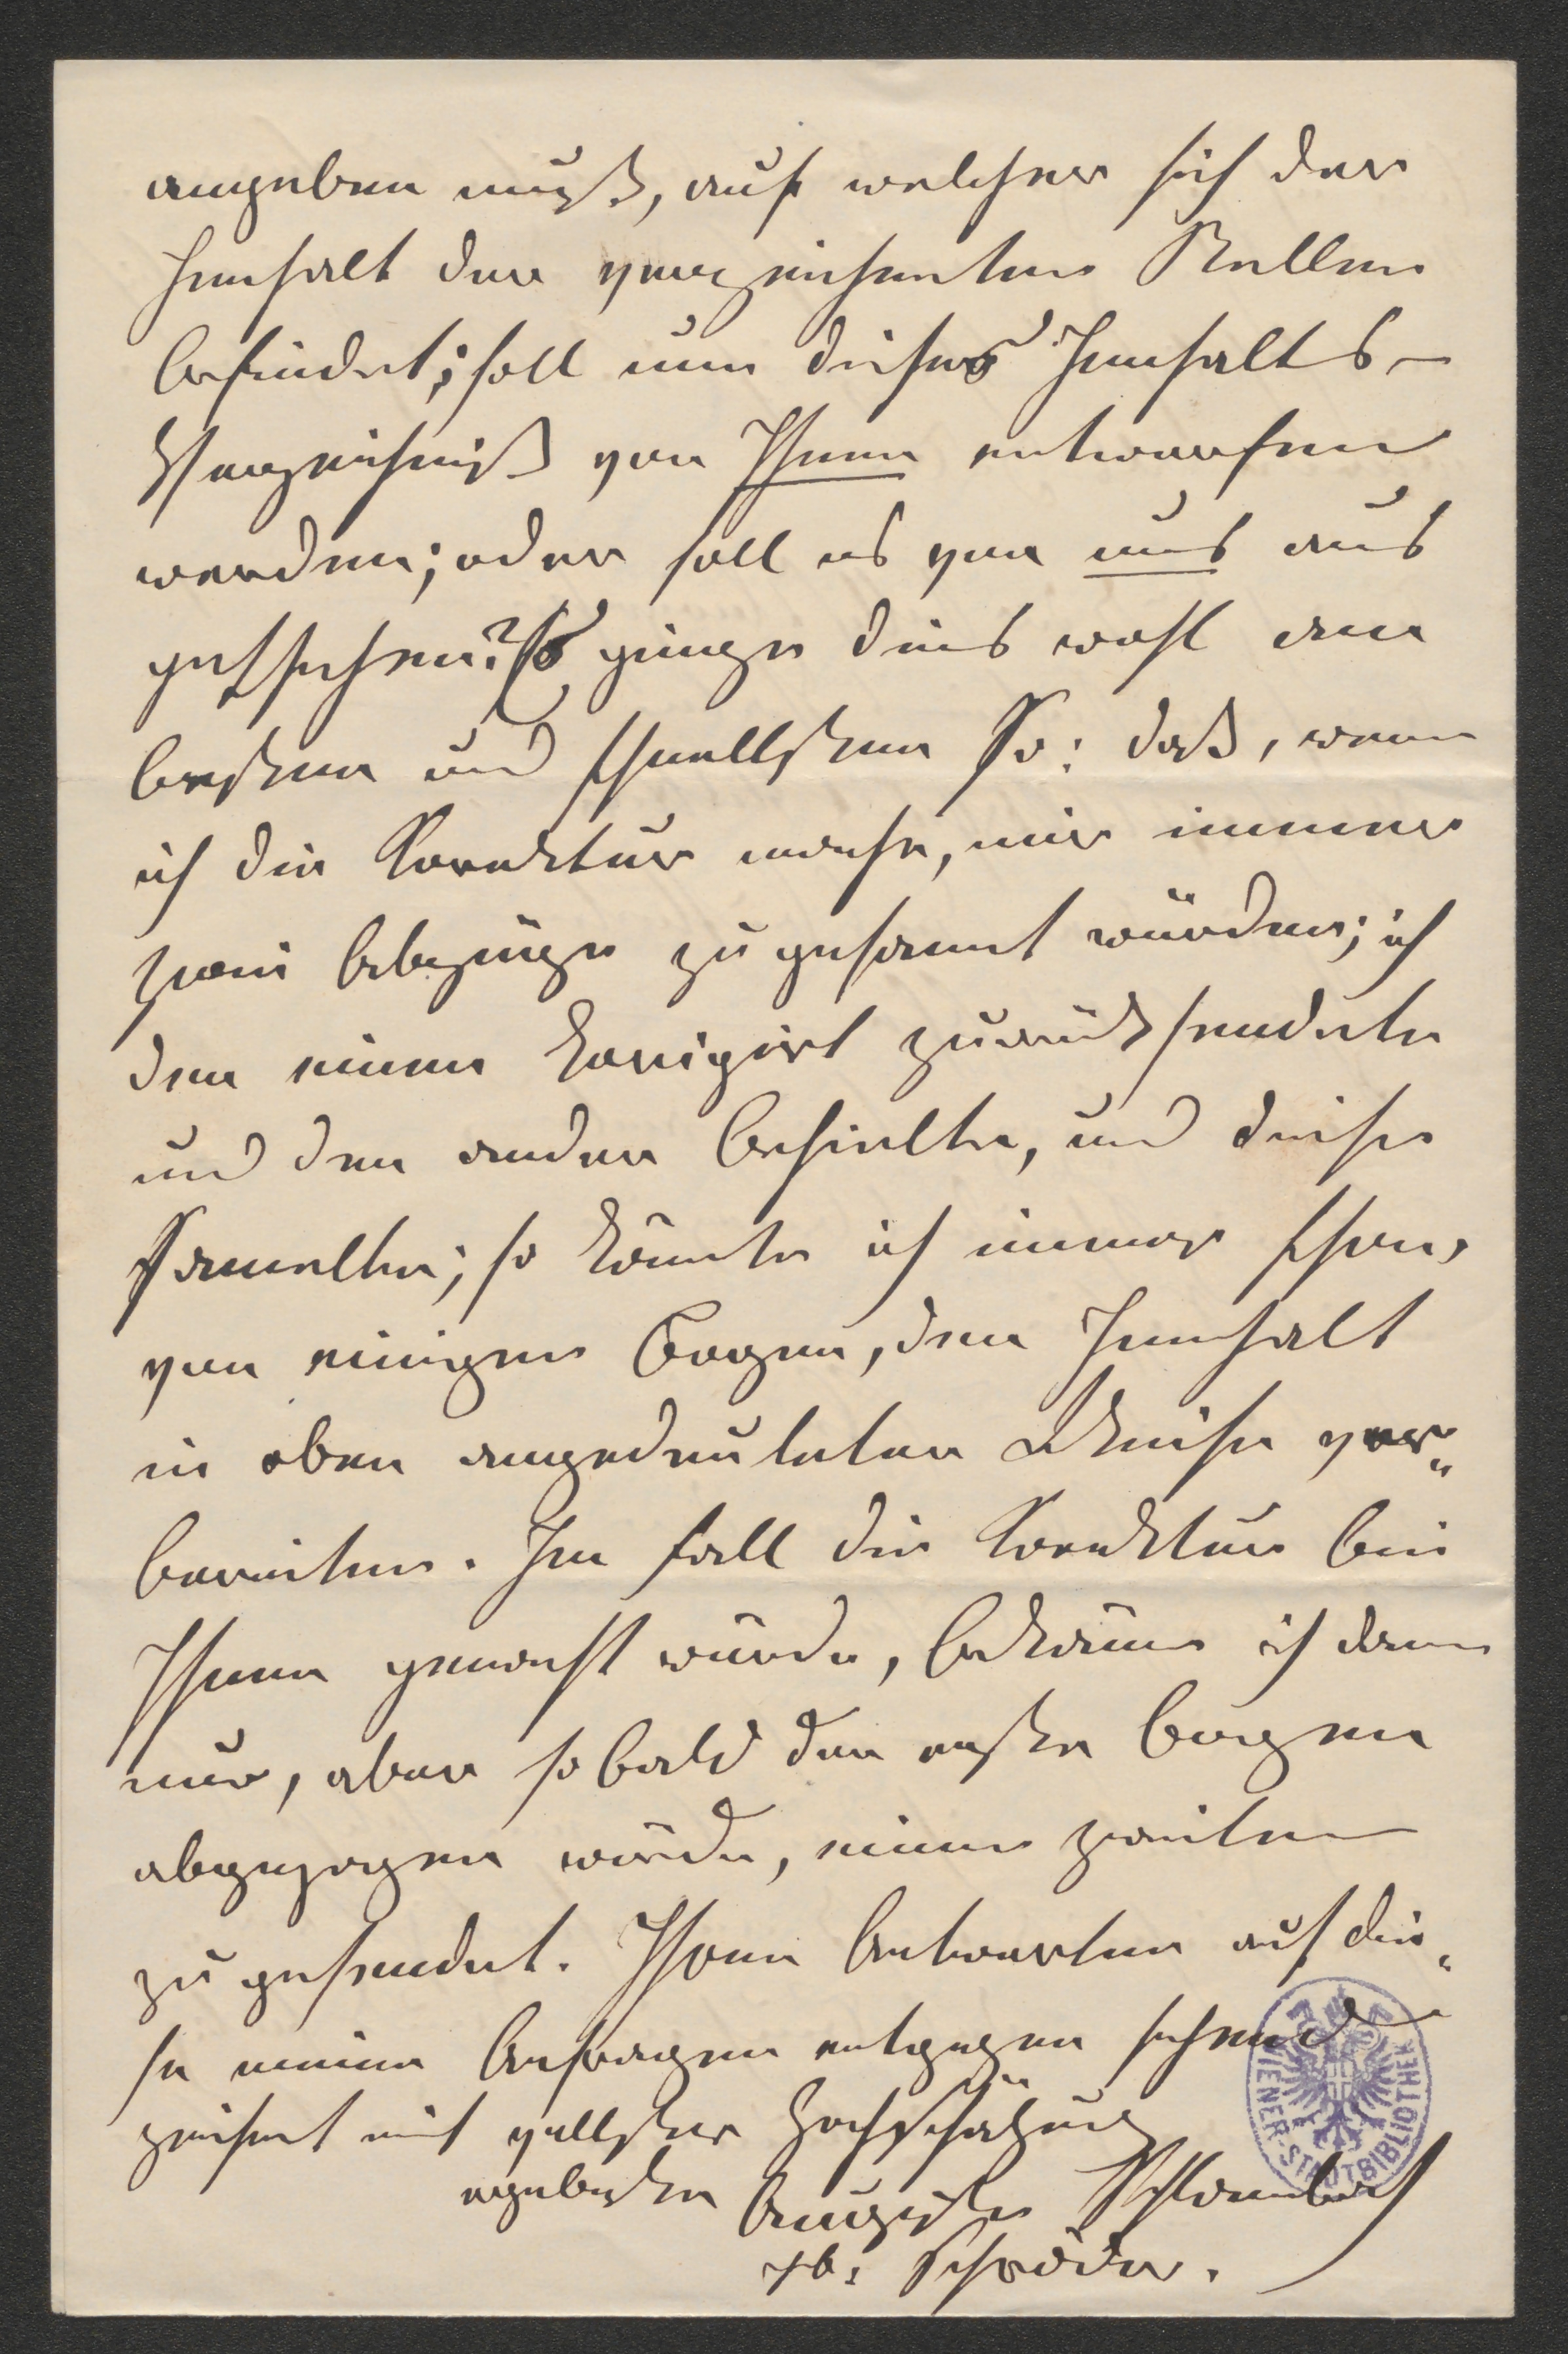 angeben muß, auf welcher sich der
Innhalt der verzeichenten Rollen
befindet; soll nun dieses Innhalts-
Verzeichniß von Ihnen entworfen
werden; oder soll es von uns aus
geschehen? so ginge dies wohl am
besten und schnellsten So: daß, wenn
ich die Korektur mache, mir immer
zwei Abzüge zu gesannt würden; ich
den einen korigirt zurück sendete
und den andern behielte, und diese
Sammelte; so könnte ich immer schon,
von einigen Bogen, den Innhalt
in oben angedeuteter Weise vor„
bereiten. Im fall die Korektur bei
Ihnen gemacht würde, bekäme ich dann
nur, aber so bald der erste Bogen
abgezogen würde, einen zweiten
zu gesendet. Ihren Antworten auf die„
se meine Anfragen entgegen sehend
zeichnet mit vollster Hochschätzung
ergebenste Auguste Schlambach
gb: Schröder.
WIENER-STADTBIBLIOTHEK